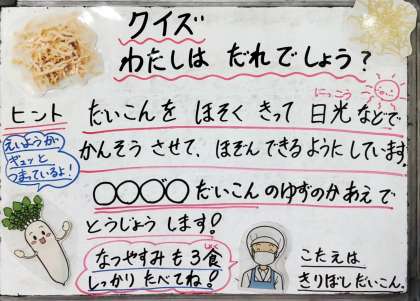 クイズ
わたしは だれでしょう？
ヒント
だいこんを ほそく きって 日光などで
にっこう
かんそう させて、ほぞんできるようにしています。
えいようが
ギュッと
つまっているよ！
〇〇〇゛〇だいこん のゆずのかあえで
とうじょう します！
なつやすみ も 3食
しょく
しっかり たべてね！
こたえは
きりぼしだいこん。